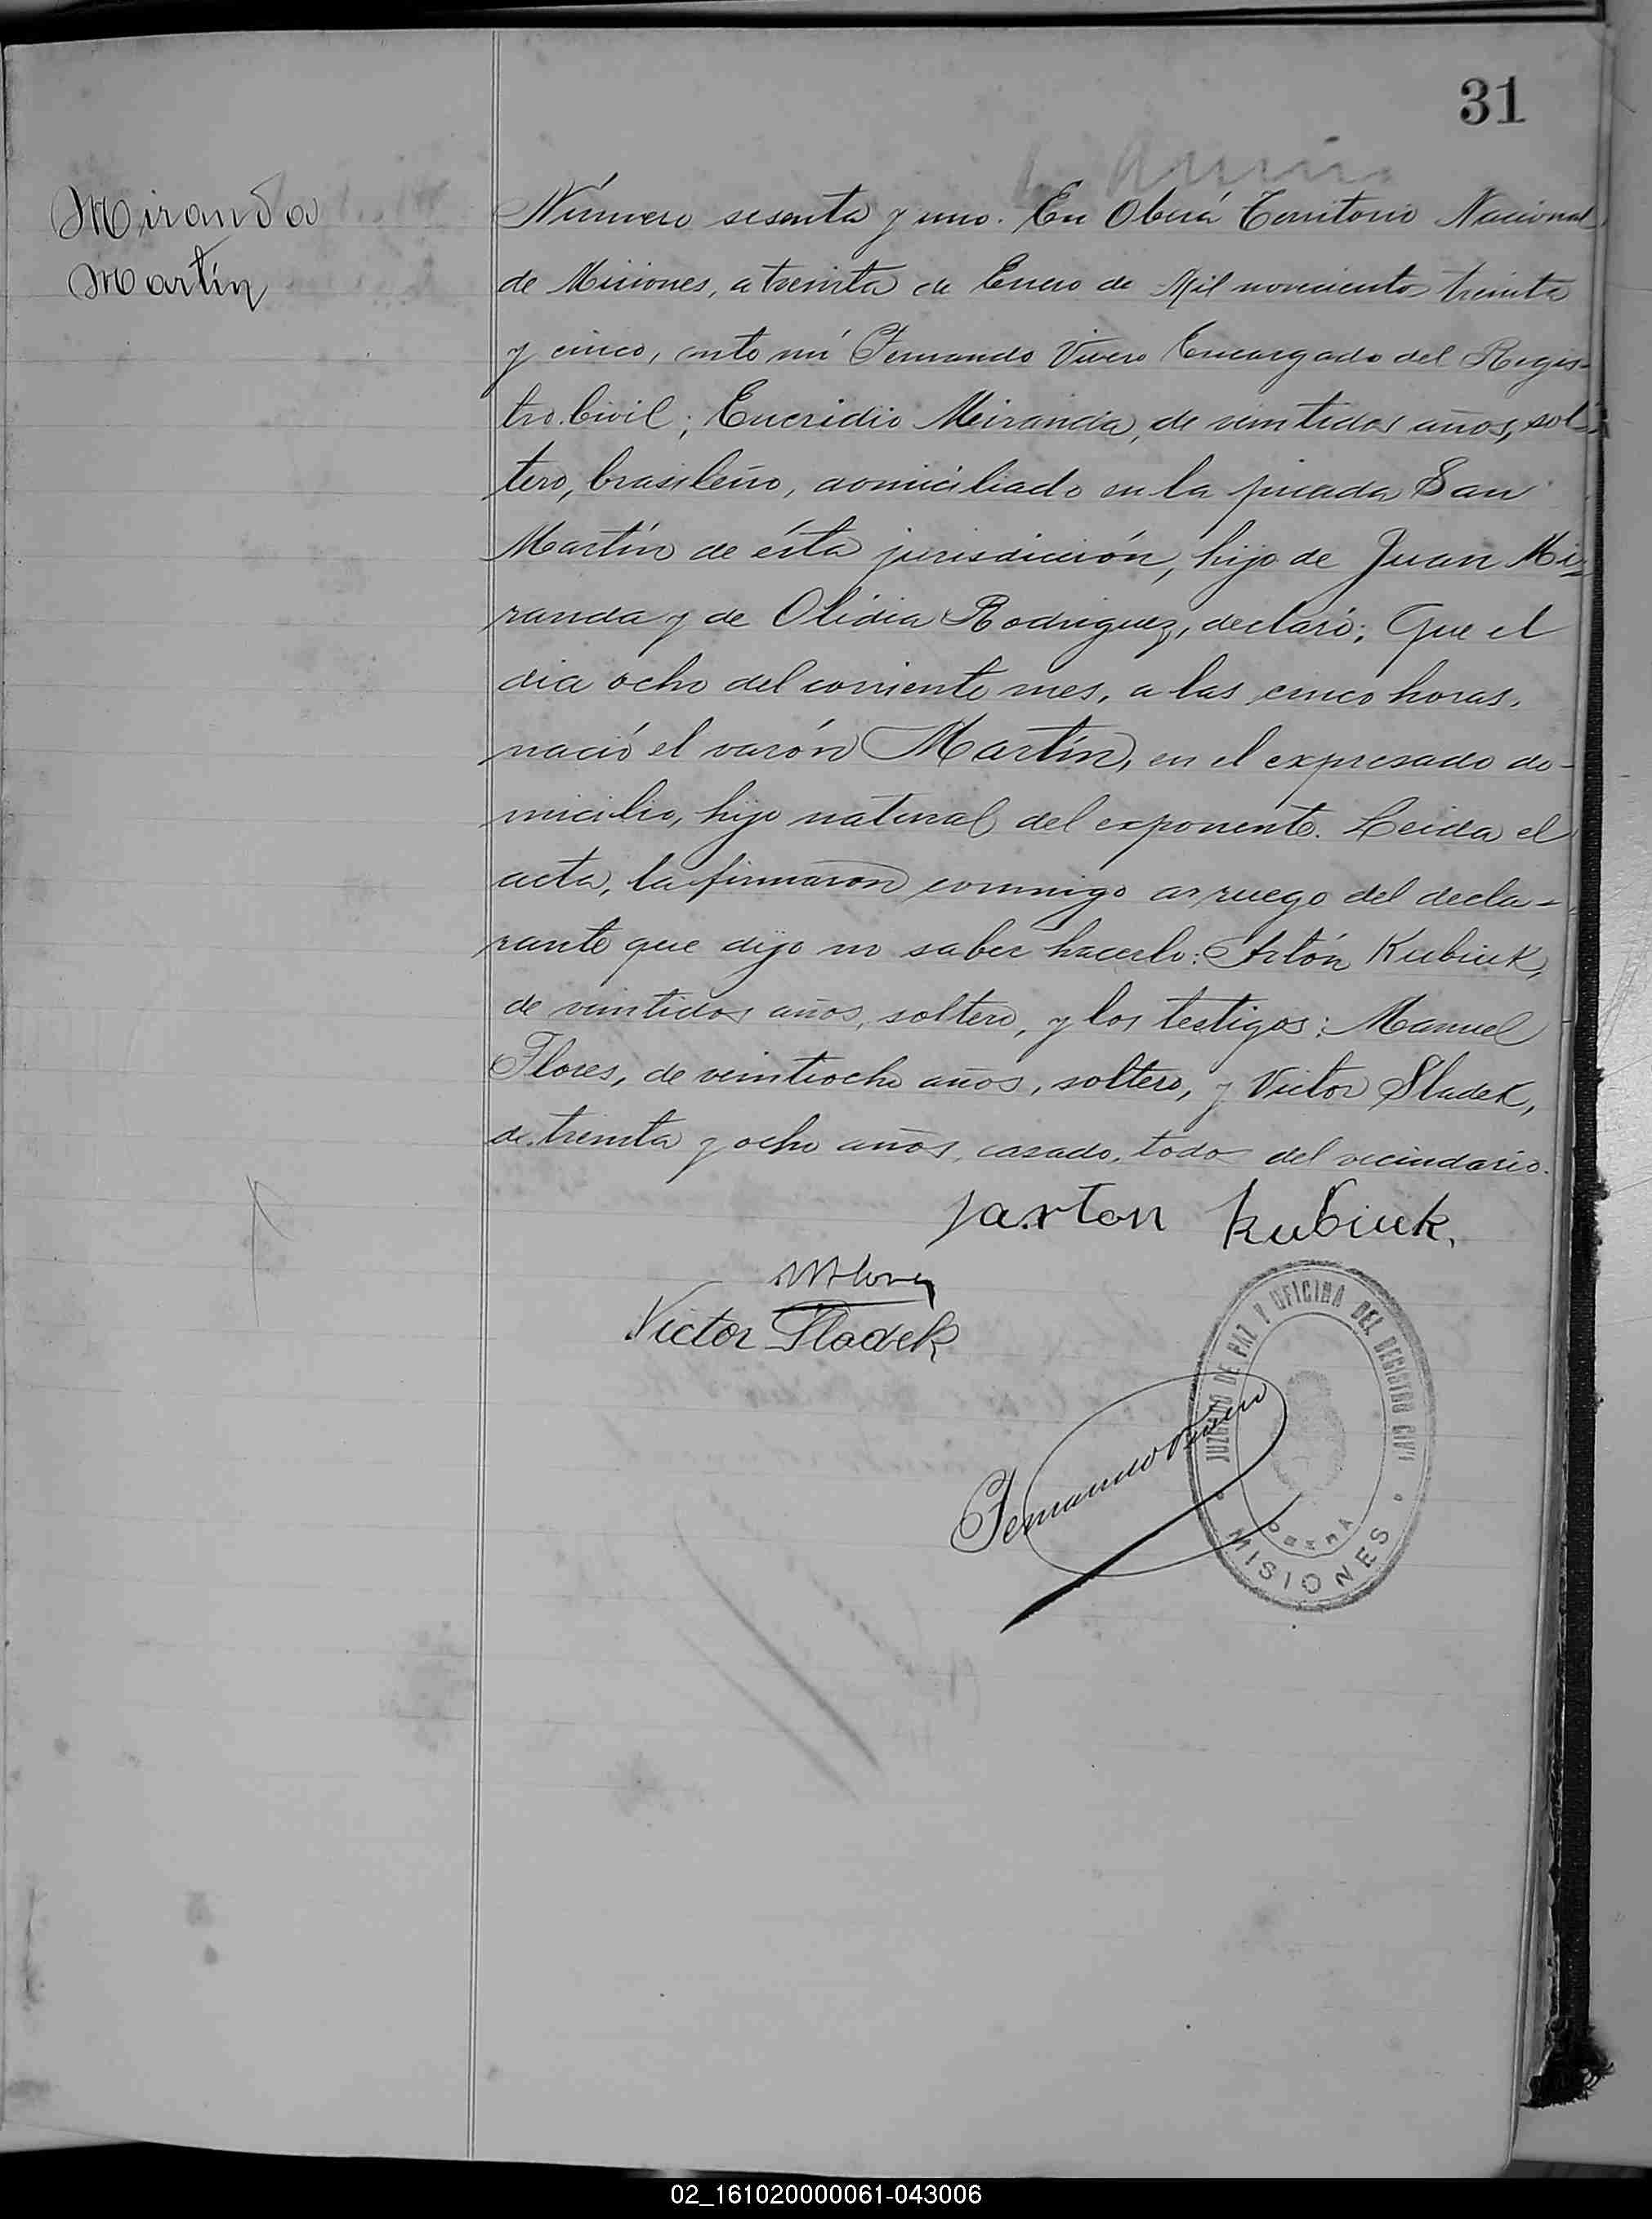 31
Miranda
Martín
Número sesenta y uno. En Oberá Territorio Nacional
de Misiones, a treinta de Enero de Mil novecientos treinta
y cinco, ante mí Fernando Vivero Encargado del Regis-
tro Civil; Eucridio Miranda, de veintidos años, sol-
tero, brasileño, domiciliado en la picada San
Martín de ésta jurisdicción, hijo de Juan Mi-
randa y de Olidia Rodriguez, declaró; Que el
dia ocho del corriente mes, a las cinco horas,
nació el varón Martín, en el expresado do-
micilio, hijo natural del exponente. Leida el
acta, la firmaron conmigo a ruego del decla-
rante que dijo no saber hacerlo: Artón Kubiuk,
de veintidos años, soltero, y los testigos: Manuel
Flores, de veintiocho años, soltero, y Victor Sladek,
de treinta y ocho años, casado, todos del vecindario.
Jarton Kubiuk.
MFlores
Victor Sladek
Fernando Vivero
JUZGADO DE PAZ Y OFICINA DEL REGISTRO CIVIL
OBERA
MISIONES
02_161020000061-043006